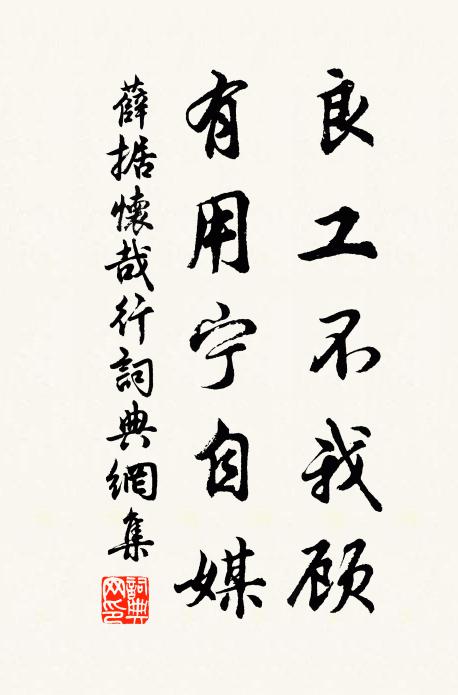 良工不我顾
有用宁自媒
薛据懷哉行詞典網集
詞典
网印